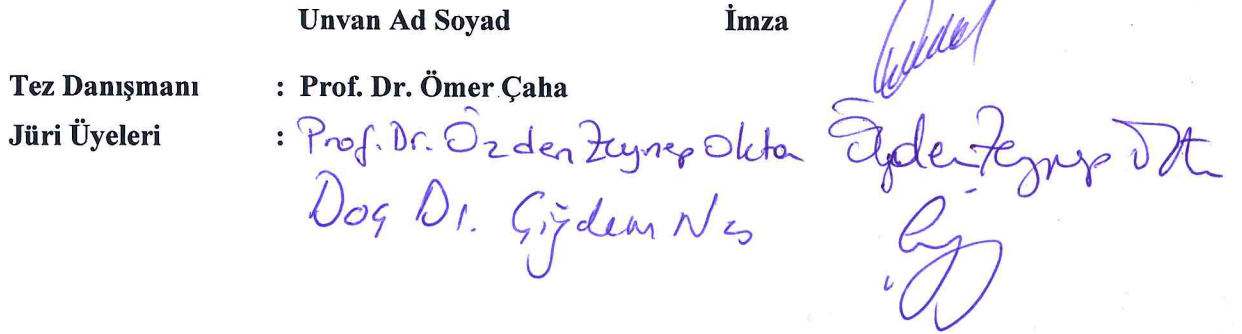 Unvan Ad Soyad İmza
Tez Danışmanı : Prof. Dr. Ömer Çaha
Jüri Üyeleri : Prof. Dr. Özden Zeynep Okta Özden Zeynep
Doç Dr. Çiğdem Nas